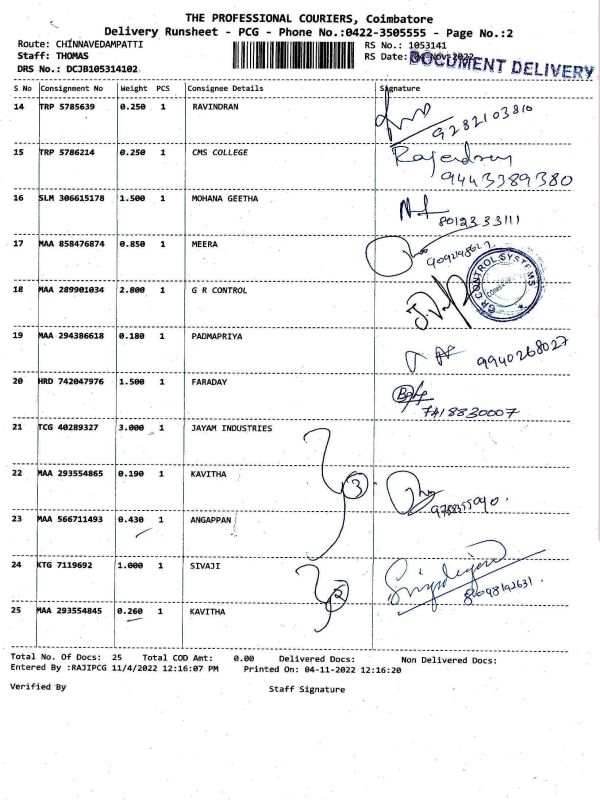 THE PROFESSIONAL COURIERS, Coimbatore
Delivery Runsheet - PCG - Phone No.:0422-3505555 - Page No.:2
Route: CHINNAVEDAMPATTI
RS No.: 1053141
Staff: THOMAS
RS Date: 04-Nov-2022
DOCUMENT DELIVERY
DRS No.: DCJB105314102
S No Consignment No Weight PCS Consignee Details Signature
14 TRP 5785639 0.250 1 RAVINDRAN
9282103810
15 TRP 5786214 0.250 1 CMS COLLEGE Rajendran
9443389380
16 SLM 306615178 1.500 1 MOHANA GEETHA
8012333111
17 MAA 858476874 0.850 1 MEERA
18 MAA 289901034 2.800 1 G R CONTROL
GR CONTROL SYSTEMS
19 MAA 294386618 0.180 1 PADMAPRIYA
9940268027
20 HRD 742047976 1.500 1 FARADAY
7418830007
21 TCG 40289327 3.000 1 JAYAM INDUSTRIES
22 MAA 293554865 0.190 1 KAVITHA
3
9788355090.
23 MAA 566711493 0.430 1 ANGAPPAN
24 KTG 7119692 1.000 1 SIVAJI
2
8098192631.
25 MAA 293554845 0.260 1 KAVITHA
Total No. Of Docs: 25 Total COD Amt: 0.00 Delivered Docs: Non Delivered Docs:
Entered By :RAJIPCG 11/4/2022 12:16:07 PM Printed On: 04-11-2022 12:16:20
Verified By Staff Signature